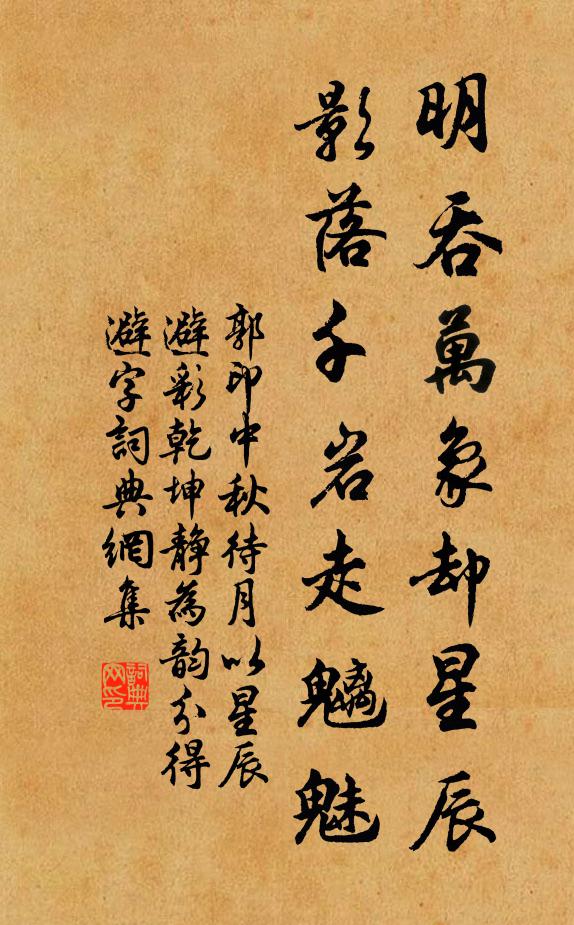 明吞萬象却星辰
影落千岩走魑魅
郭印中秋待月以星辰
避彩乾坤靜為韵分得
避字詞典網集
詞典
网印